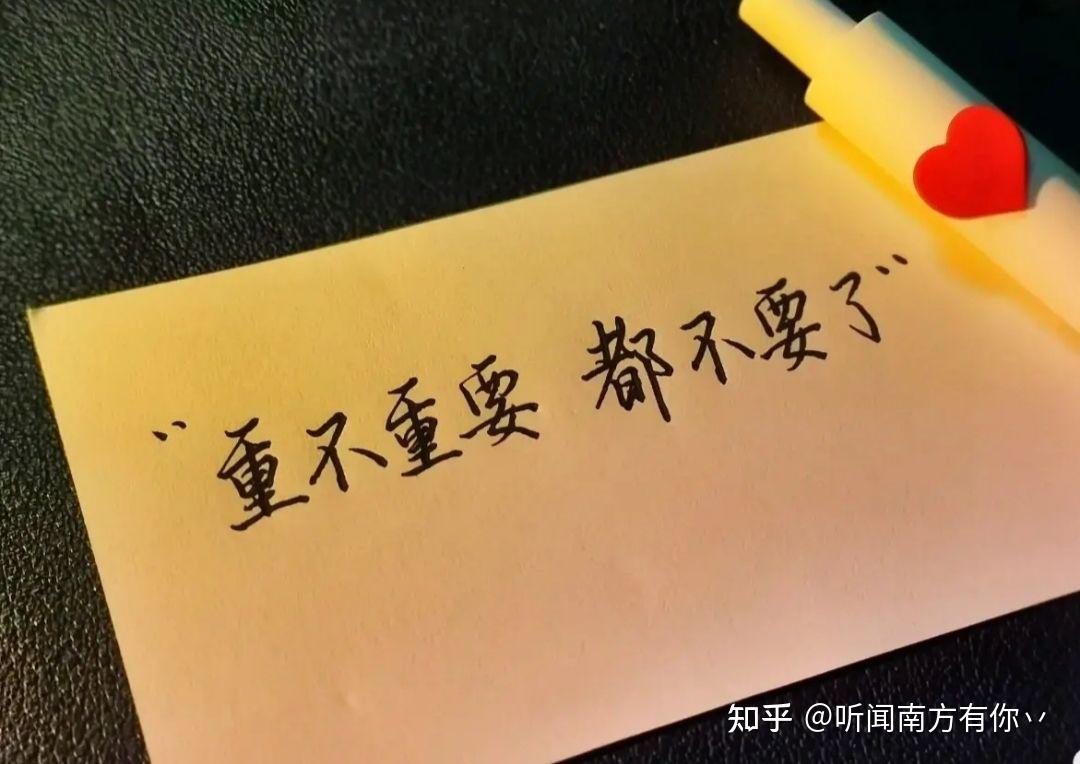 “重不重要 都不要了”
知乎 @听闻南方有你丷